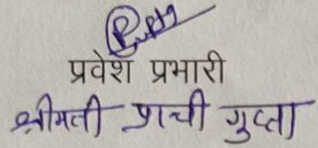 प्रवेश प्रभारी
श्रीमती प्राची गुप्ता